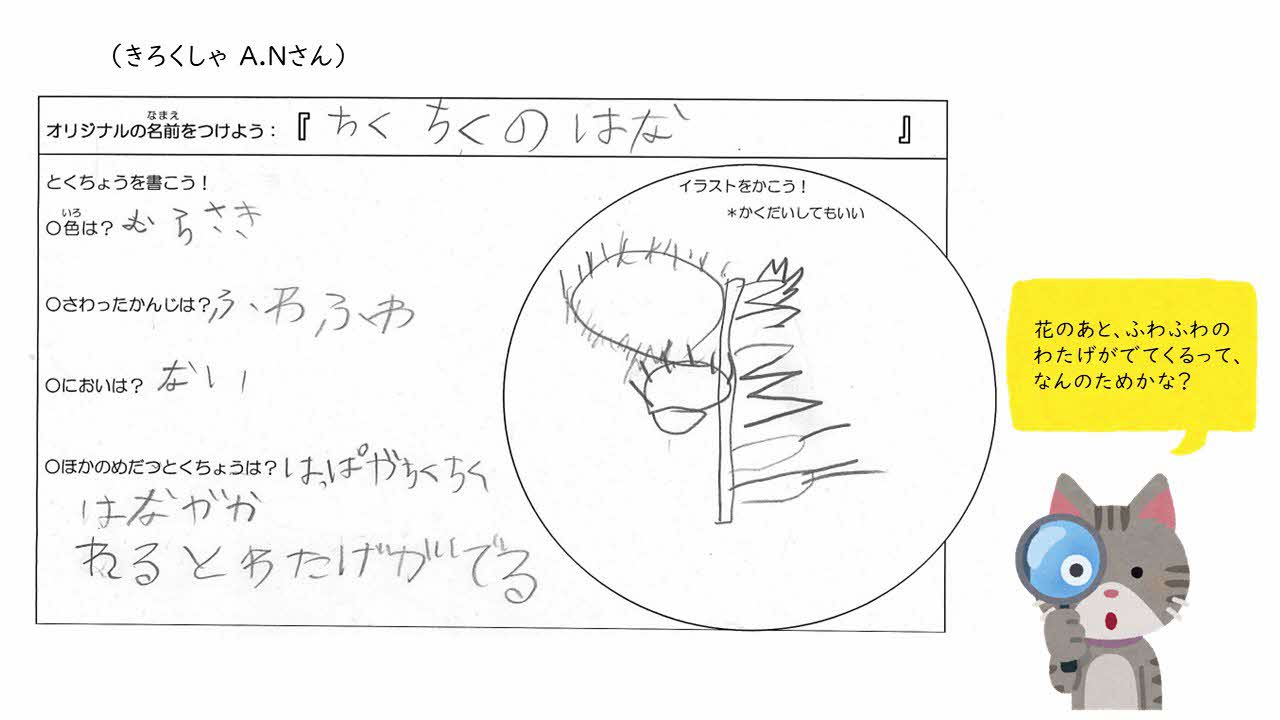 （きろくしゃ A.Nさん）
オリジナルの名前をつけよう：『ちくちくのはな』
なまえ
とくちょうを書こう！
いろ
○色は？むらさき
○さわったかんじは？ふわふわ
○においは？ない
○ほかのめだつとくちょうは？はっぱがちくちく
はながか
れるとわたげがでる
イラストをかこう！
＊かくだいしてもいい
花のあと、ふわふわの
わたげがでてくるって、
なんのためかな？